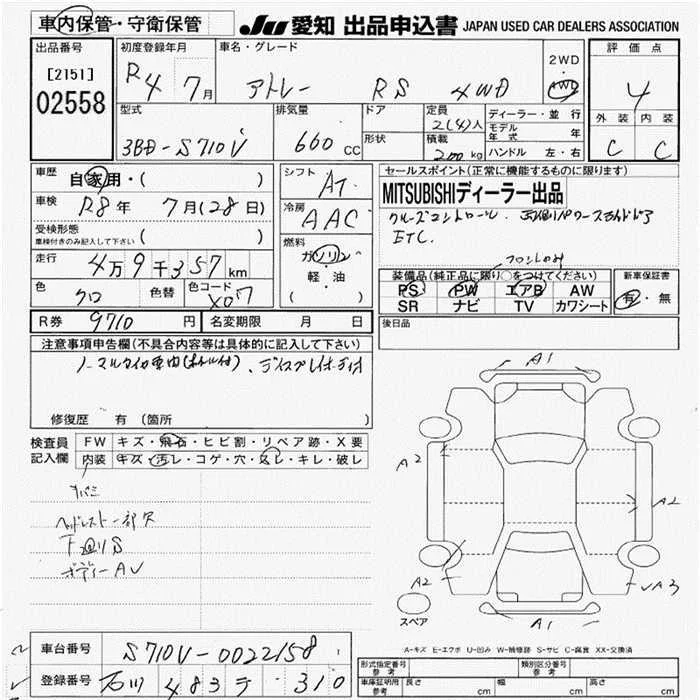 車内保管・守衛保管
JU 愛知 出品申込書 JAPAN USED CAR DEALERS ASSOCIATION
出品番号
[2151]
02558
初度登録年月
R4 7月
車名・グレード
アトレー RS 4WD
2WD
・
4WD
評価点
4
外装 内装
C C
型式
3BD-S710V
排気量
660 cc
ドア
形状
定員
2(4)人
積載
200 kg
ディーラー・並行
モデル年式 年
ハンドル 左・右
車歴
自家用・( )
車検
R8年 7月(28日)
受検形態
車検付きのみ記入して下さい ( )
走行
4万9千357km
色
クロ
色替
色コード
X07
シフト
AT
冷房
AAC
燃料
ガソリン
・
軽・油
( )
セールスポイント(正常に機能するものに限ります)
MITSUBISHIディーラー出品
クルーズコントロール、両側パワースライドドア
ETC.
フロントのみ
装備品(純正品に限り○をつけてください)
PS PW エアB AW
SR ナビ TV カワシート
新車保証書
有・無
R券 9710円 名変期限 月 日
後日品
注意事項申告欄(不具合内容等は具体的に記入して下さい)
ノーマルタイヤ車内(ホイル付)、ディスプレイオーディオ
修復歴 有(箇所 )
検査員
記入欄
FW キズ・飛石・ヒビ割・リペア跡・X要
内装 キズ・汚レ・コゲ・穴・スレ・キレ・破レ
ヘッドレスト一部欠
下回りS
ボディーAU
A1
A2
A2
A2
A3
A1
スペア
A-キズ E-エクボ U-凹み W-補修跡 S-サビ C-腐食 XX-交換済
車台番号 S710V-0022158
登録番号 石川 483 テ 310
形式指定番号 参考
類別区分番号 参考
車庫証明用 参考 長さ cm 幅 cm 高さ cm